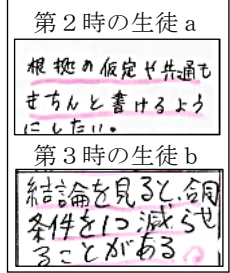 第２時の生徒a
根拠の仮定や共通も
きちんと書けるよう
にしたい。
第３時の生徒b
結論を見ると、合同
条件を1つ減らせ
ることがある